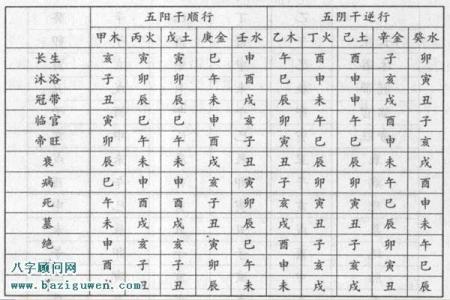 五阳干顺行 五阴干逆行
甲木 丙火 戊土 庚金 壬水 乙木 丁火 己土 辛金 癸水
长生 亥 寅 寅 巳 申 午 酉 酉 子 卯
沐浴 子 卯 卯 午 酉 巳 申 申 亥 寅
冠带 丑 辰 辰 未 戌 辰 未 未 戌 丑
临官 寅 巳 巳 申 亥 卯 午 午 酉 子
帝旺 卯 午 午 酉 子 寅 巳 巳 申 亥
衰 辰 未 未 戌 丑 丑 辰 辰 未 戌
病 巳 申 申 亥 寅 子 卯 卯 午 酉
死 午 酉 酉 子 卯 亥 寅 寅 巳 申
墓 未 戌 戌 丑 辰 戌 丑 丑 辰 未
绝 申 亥 亥 寅 巳 酉 子 子 卯 午
酉 子 子 卯 午 申 亥 亥 寅 巳
丑 丑 辰 未 未 戌 戌 丑 辰
八字顾问网
www.baziguwen.com